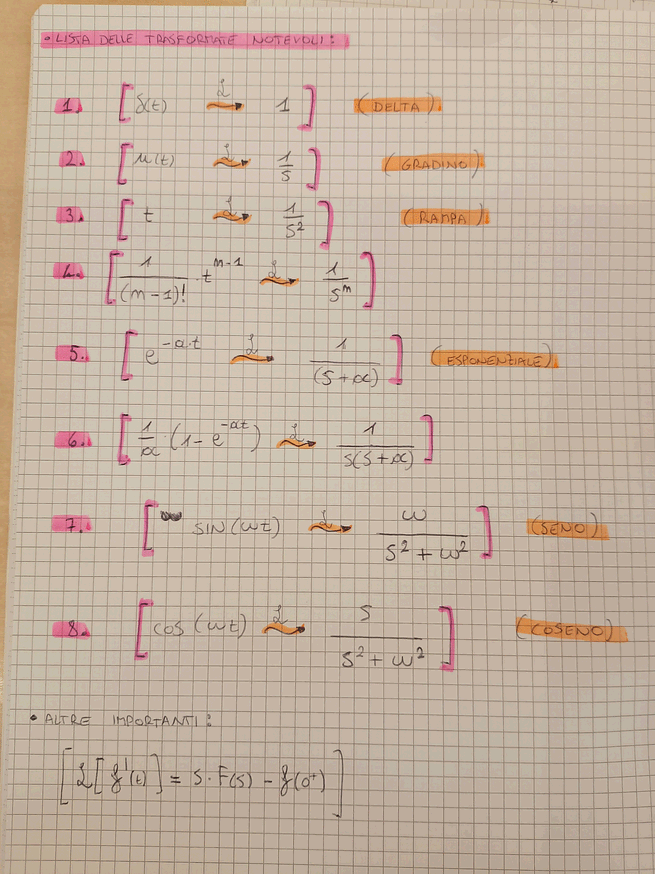 • LISTA DELLE TRASFORMATE NOTEVOLI:
1. [ δ(t) ℒ→ 1 ] (DELTA)
2. [ u(t) ℒ→ 1/s ] (GRADINO)
3. [ t ℒ→ 1/s² ] (RAMPA)
4. [ 1/(m-1)! · t^(m-1) ℒ→ 1/s^m ]
5. [ e^(-a·t) ℒ→ 1/(s+α) ] (ESPONENZIALE)
6. [ 1/α · (1-e^(-αt)) ℒ→ 1/(s(s+α)) ]
7. [ SIN(ωt) ℒ→ ω/(s²+ω²) ] (SENO)
8. [ cos(ωt) ℒ→ s/(s²+ω²) ] (COSENO)
• ALTRE IMPORTANTI:
[ ℒ[f'(t)] = s·F(s) - f(0⁺) ]